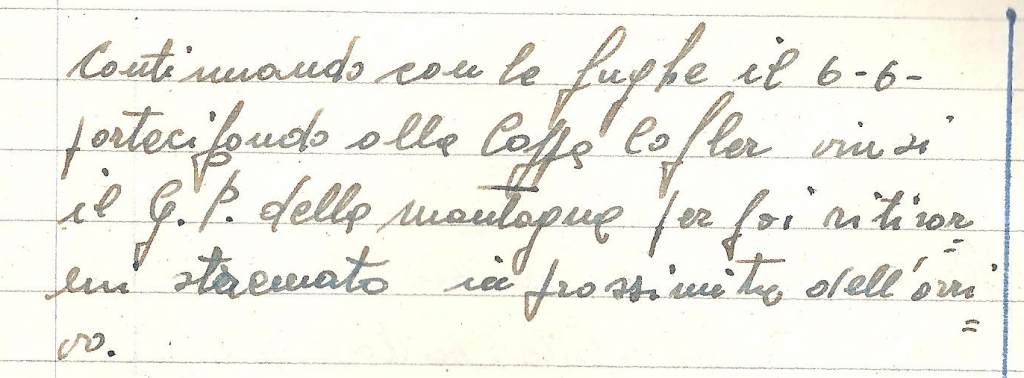 Continuando con le fughe il 6-6-
partecipando alla Coppa Cofler vinsi
il G.P. della montagna per poi ritirar=
mi stremato in prossimità dell'arri=
vo.